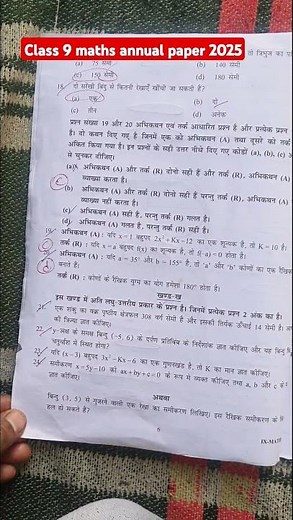 Class 9 maths annual paper 2025
तो त्रिभुज का
(a) 75 सेमी (b) 140 सेमी
(c) 150 सेमी (d) 180 सेमी
18. दो बिंदु से कितनी रेखाएँ खींची जा सकती है?
(a) एक (b) दो
(c) तीन (d) अनेक
प्रश्न संख्या 19 और 20 अभिकथन एवं तर्क आधारित प्रश्न हैं और प्रत्येक प्रश्न
हैं। दो कथन दिए गए हैं जिनमें एक को अभिकथन (A) तथा दूसरे को तर्क
अंकित किया गया है। इन प्रश्नों के सही उत्तर नीचे दिए गए कोडों (a), (b), (c)
में चुनकर दीजिए।
(a) अभिकथन (A) और तर्क (R) दोनों सही हैं और तर्क (R), अभिकथन (A)
व्याख्या करता है।
(b) अभिकथन (A) और तर्क (R) दोनों सही हैं परन्तु तर्क (R), अभिकथन (A)
व्याख्या नहीं करता है।
(c) अभिकथन (A) सही है, परन्तु तर्क (R) गलत है।
(d) अभिकथन (A) गलत है, परन्तु तर्क (R) सही है।
19. अभिकथन (A) : यदि x=1 बहुपद 2x²+Kx-12 का एक शून्यक है, तो K=10 है।
तर्क (R) : यदि x=a बहुपद f(x) का शून्यक है, तो f(a)=0 होता है।
अभिकथन (A) : यदि a=35° और b=155° है, तो 'a' और 'b' कोणों का एक रैखिक
बनाते हैं।
तर्क (R) : कोणों के रैखिक युग्म का योग हमेशा 180° होता है।
खण्ड-ख
इस खण्ड में अति लघु-उत्तरीय प्रकार के प्रश्न हैं। जिनमें प्रत्येक प्रश्न 2 अंक का है।
21. एक शंकु का वक्र पृष्ठीय क्षेत्रफल 308 वर्ग सेमी है और इसकी तिर्यक ऊँचाई 14 सेमी है।
की त्रिज्या ज्ञात कीजिए।
22. y-अक्ष के सापेक्ष बिन्दु (-5, 6) के दर्पण प्रतिबिंब के निर्देशांक ज्ञात कीजिए और यह बिन्दु
चतुर्थांश में स्थित होगा?
23. यदि (x-3) बहुपद 3x²-Kx-6 का एक गुणनखंड है, तो K का मान ज्ञात कीजिए।
24. समीकरण x=5y-10 को ax+by+c=0 के रूप में व्यक्त कीजिए तथा a, b और c के
ज्ञात कीजिए।
अथवा
बिन्दु (3, 5) से गुजरने वाली एक रेखा का समीकरण लिखिए। इस रैखिक समीकरण के
हल हो सकते हैं?
6